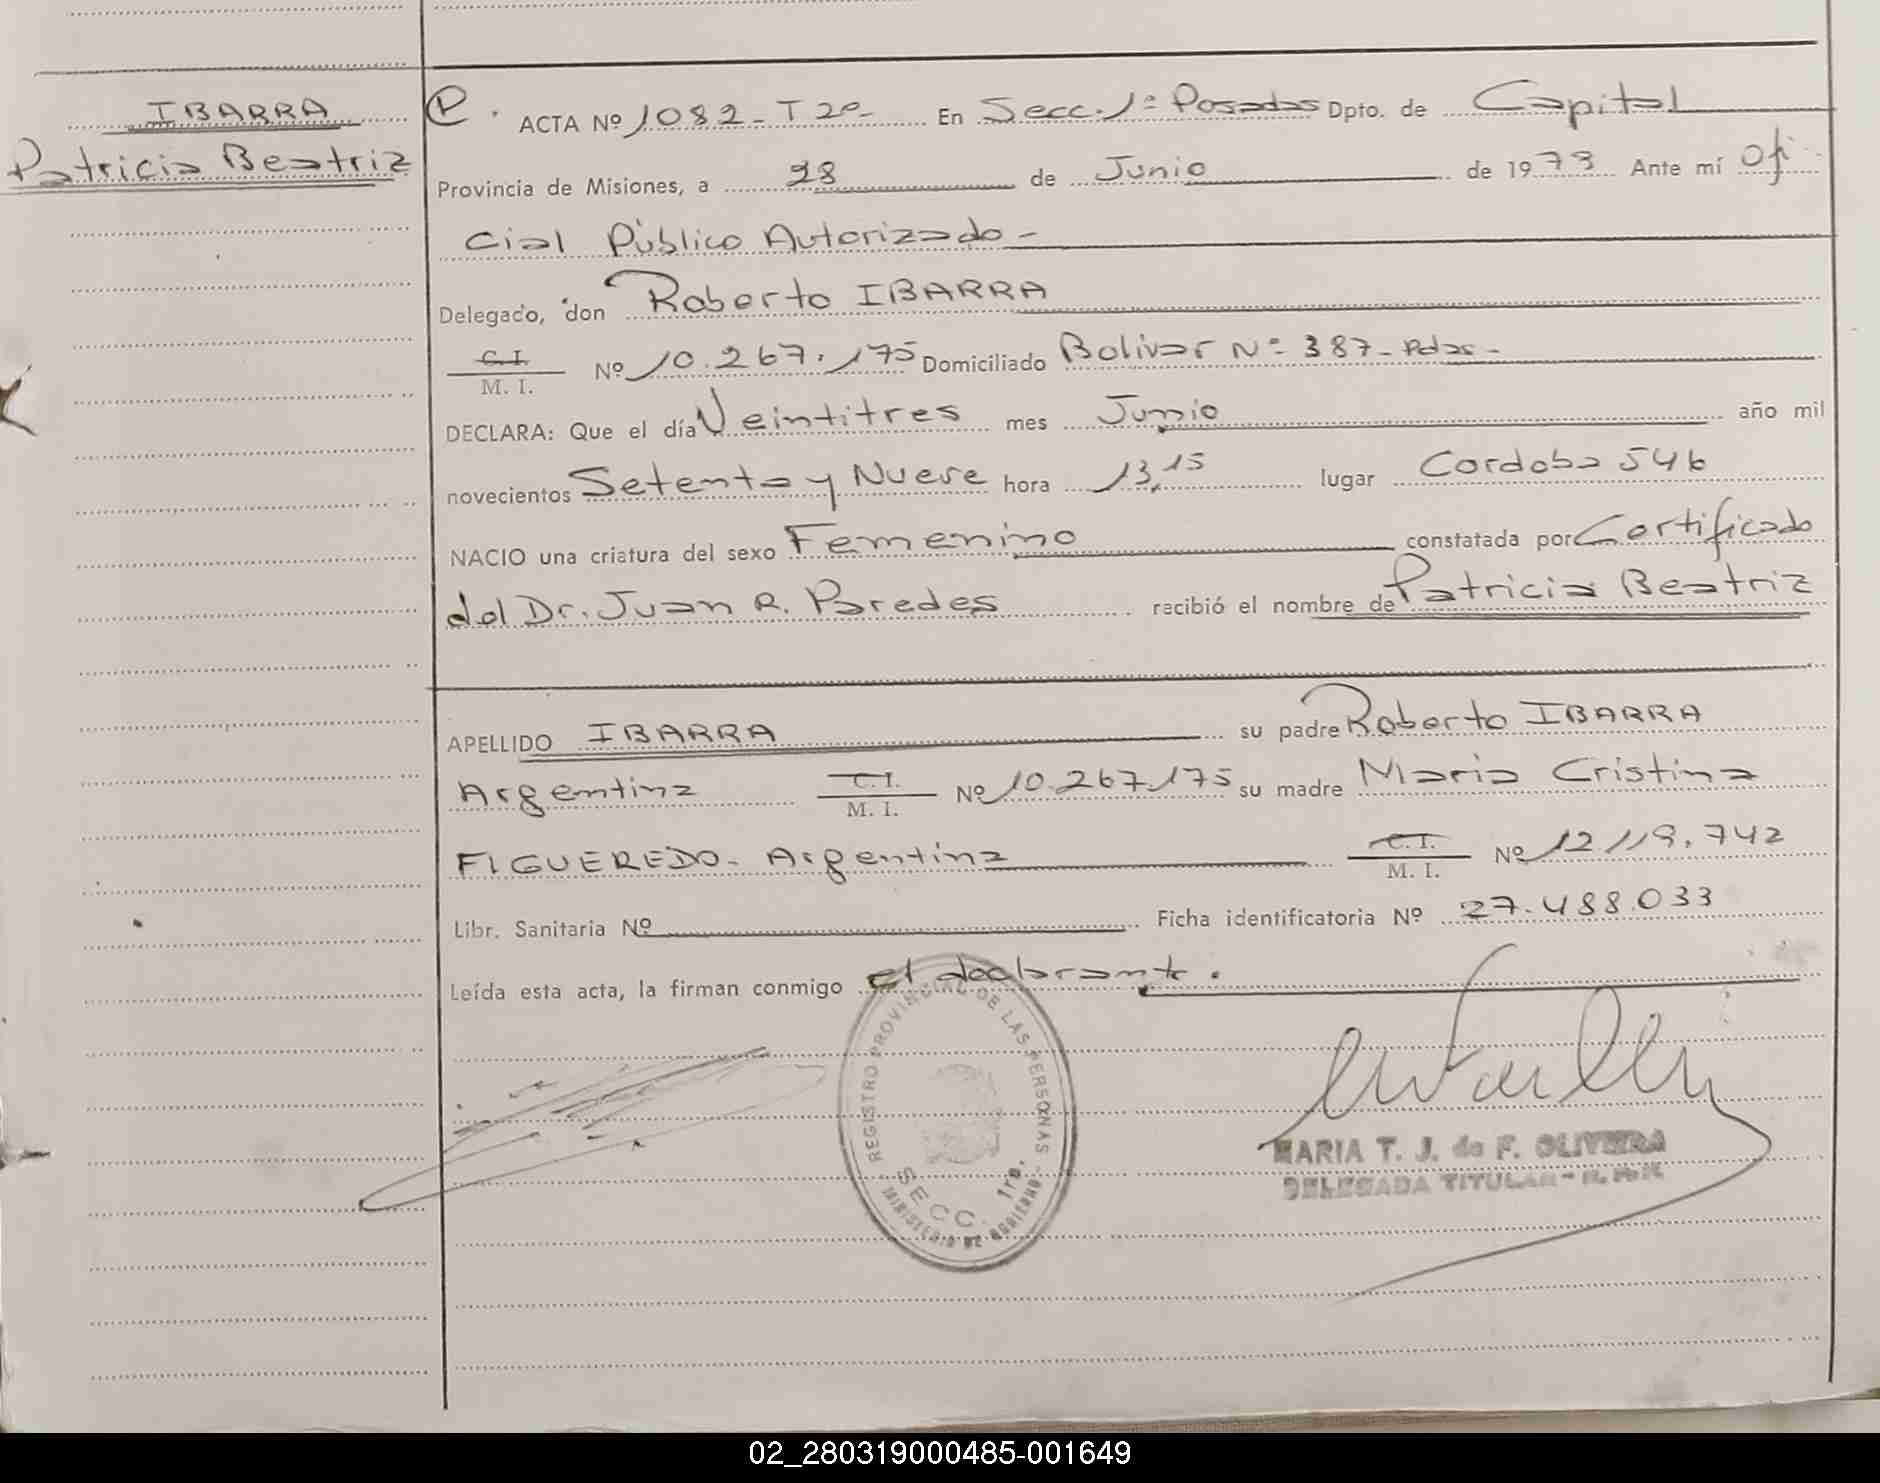 IBARRA
Patricia Beatriz
P. ACTA Nº 1082-T2º- En Secc. 1ª Posadas Dpto. de Capital
Provincia de Misiones, a 28 de Junio de 1979 Ante mí Ofi
cial Público Autorizado-
Delegado, don Roberto IBARRA
C.I.
M. I. Nº 10.267.175 Domiciliado Bolivar Nº 387-Pdas-
DECLARA: Que el día Veintitres mes Junio año mil
novecientos Setenta y Nueve hora 13,15 lugar Cordoba 546
NACIO una criatura del sexo Femenino constatada por Certificado
del Dr. Juan R. Paredes recibió el nombre de Patricia Beatriz
APELLIDO IBARRA su padre Roberto IBARRA
Argentina C.I.
M. I. Nº 10.267.175 su madre Maria Cristina
FIGUEREDO- Argentina C.I.
M. I. Nº 12.119.742
Libr. Sanitaria Nº Ficha identificatoria Nº 27.488.033
Leída esta acta, la firman conmigo el declarante.
REGISTRO PROVINCIAL DE LAS PERSONAS
SECC. 1ra.
MINISTERIO DE GOBIERNO
MARIA T. J. de F. OLIVEIRA
DELEGADA TITULAR
02_280319000485-001649